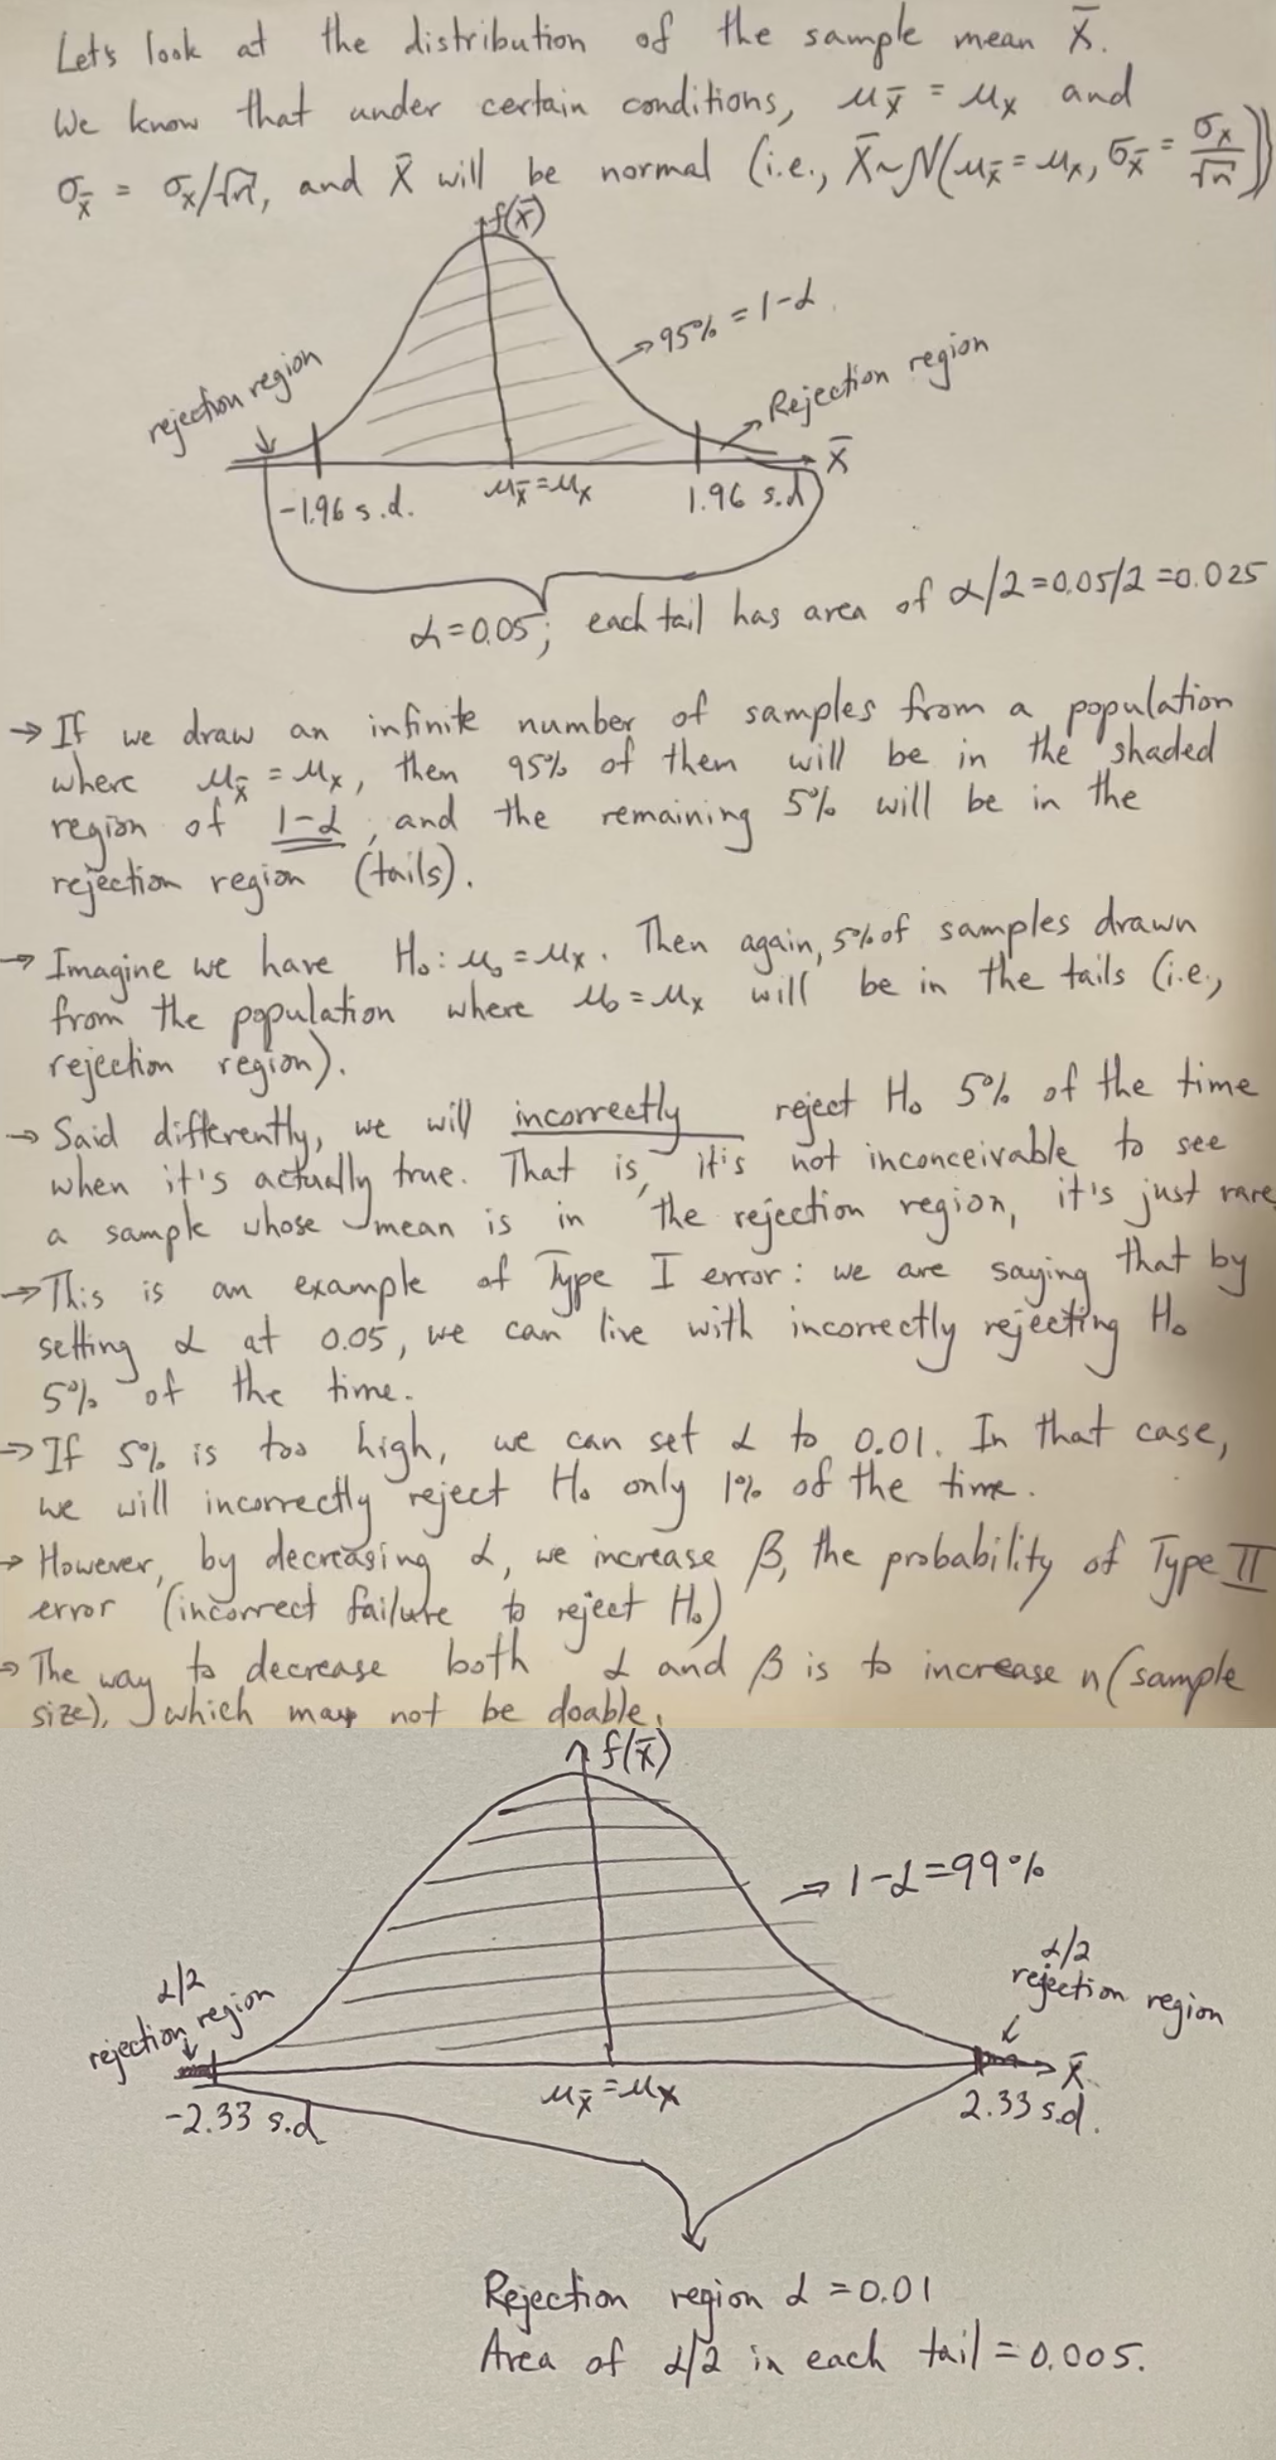 Let's look at the distribution of the sample mean X̄.
We know that under certain conditions, μx̄ = μx and
σx̄ = σx/√n, and X̄ will be normal (i.e., X̄~N(μx̄ = μx, σx̄ = σx/√n))
f(x̄)
→ 95% = 1-α
rejection region
Rejection region
X̄
-1.96 s.d.
μx̄ = μx
1.96 s.d
α = 0.05; each tail has area of α/2 = 0.05/2 = 0.025
→ If we draw an infinite number of samples from a population
where μx̄ = μx, then 95% of them will be in the shaded
region of 1-α, and the remaining 5% will be in the
rejection region (tails).
→ Imagine we have H₀: μ₀ = μx. Then again, 5% of samples drawn
from the population where μ₀ = μx will be in the tails (i.e.,
rejection region).
→ Said differently, we will incorrectly reject H₀ 5% of the time
when it's actually true. That is, it's not inconceivable to see
a sample whose mean is in the rejection region, it's just rare.
→ This is an example of Type I error: we are saying that by
setting α at 0.05, we can live with incorrectly rejecting H₀
5% of the time.
→ If 5% is too high, we can set α to 0.01. In that case,
we will incorrectly reject H₀ only 1% of the time.
→ However, by decreasing α, we increase β, the probability of Type II
error (incorrect failure to reject H₀)
→ The way to decrease both α and β is to increase n (sample
size), which may not be doable.
f(x̄)
→ 1-α = 99%
α/2
rejection region
α/2
rejection region
X̄
-2.33 s.d.
μx̄ = μx
2.33 s.d.
Rejection region α = 0.01
Area of α/2 in each tail = 0.005.